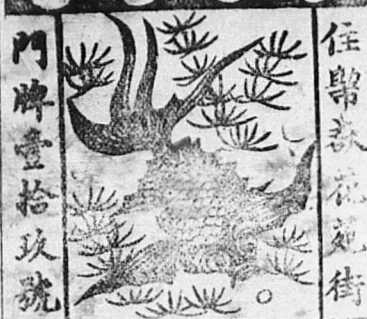 住幣㪚花苑街
門牌壹拾玖號